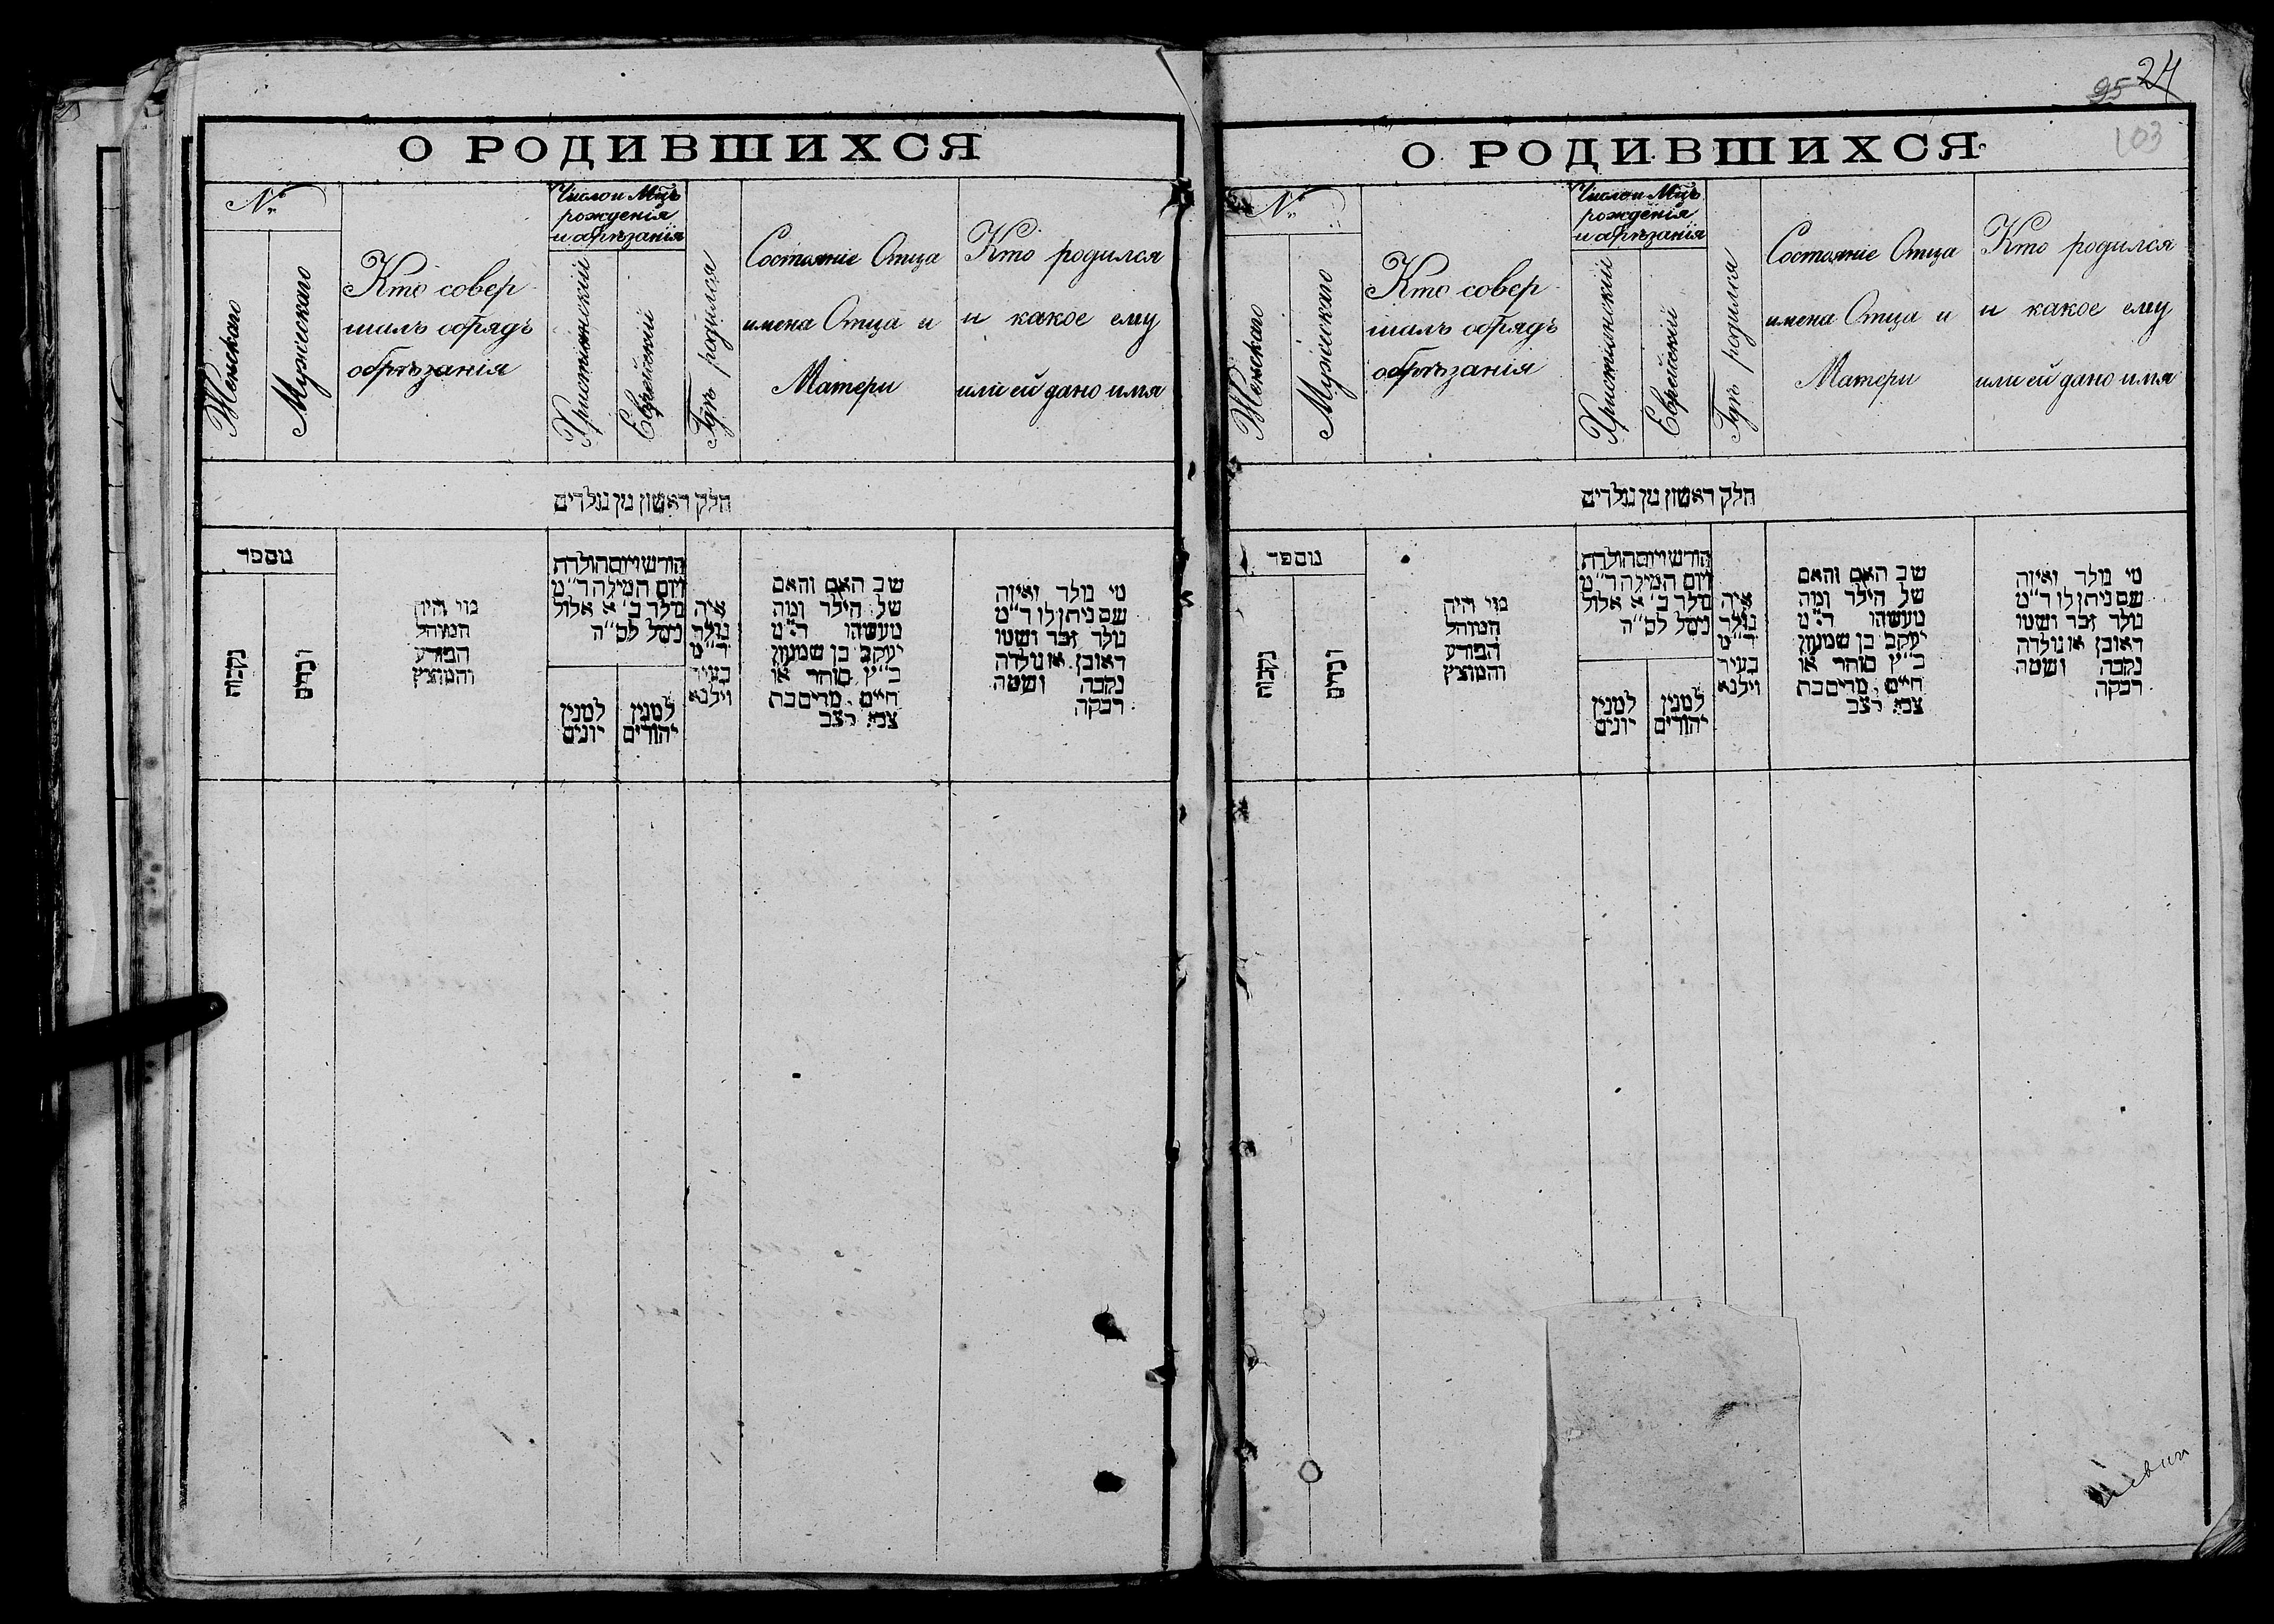 О РОДИВШИХСЯ
№
Женскаго
Мужескаго
Кто совер
шалъ обрядъ
обрѣзанія
Число и Мцъ
рожденія
и обрѣзанія
Христіянскій
Еврейскій
Гдѣ родился
Состояніе Отца
имена Отца и
Матери
Кто родился
и какое ему
или ей дано имя
חלק ראשון מן נולדים
מספר
נקבות
זכרים
מי היה
המוהל
הפורע
והמוצץ
חודש ויום הולדת
ויום המילה ד"מ
נולד ב' א אלול
נימל לס"ה
למנין
יונים
למנין
יהודים
איה
נולד
ד"מ
בעיר
וילנא
שב האם והאם
של הילד ומה
מעשהו ד"מ
יעקב בן שמעון
כ"ץ סוחר או
חיים, מרים בת
צבי רצב
מי נולד ואיזה
שם ניתן לו ד"מ
נולד זכר ושמו
ראובן או נולדה
נקבה ושמה
רבקה
95 24
103
О РОДИВШИХСЯ
№
Женскаго
Мужескаго
Кто совер
шалъ обрядъ
обрѣзанія
Число и Мцъ
рожденія
и обрѣзанія
Христіянскій
Еврейскій
Гдѣ родился
Состояніе Отца
имена Отца и
Матери
Кто родился
и какое ему
или ей дано имя
חלק ראשון מן נולדים
מספר
נקבות
זכרים
מי היה
המוהל
הפורע
והמוצץ
חודש ויום הולדת
ויום המילה ד"מ
נולד ב' א אלול
נימל לס"ה
למנין
יונים
למנין
יהודים
איה
נולד
ד"מ
בעיר
וילנא
שב האם והאם
של הילד ומה
מעשהו ד"מ
יעקב בן שמעון
כ"ץ סוחר או
חיים, מרים בת
צבי רצב
מי נולד ואיזה
שם ניתן לו ד"מ
נולד זכר ושמו
ראובן או נולדה
נקבה ושמה
רבקה